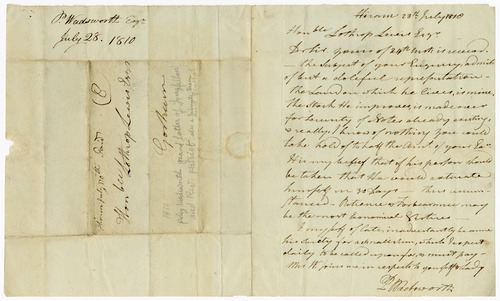 Pg. Wadsworth Esqr
July 28. 1810
Hiram July 30th Paid
Honble Lothrop Lewis Esqr
Gorham
1810
Peleg Wadsworth Grandfather of Longfellow
Hiram 28th July 1810
Honble Lothrop Lewis Esqr
Dr Sir yours of 24th inst. is receivd
— the Subject of your Enquiry, admits
of but a doleful representation —
the Land on which he lives, is mine,
the Stock He improves, is made over
for Security of Notes already existing,
& really I know of nothing you could
take hold of to half the debt of your
It is my belief that if his person should
be taken that He would
himself in 30 days — thus
Patience & Forbearance may
be the most
I myself of late inadvertently became
his Surety for a small sum, which I expect
daily to be called upon for, & must pay —
Mrs W. joins me in respects to yourself & Lady
P. Wadsworth